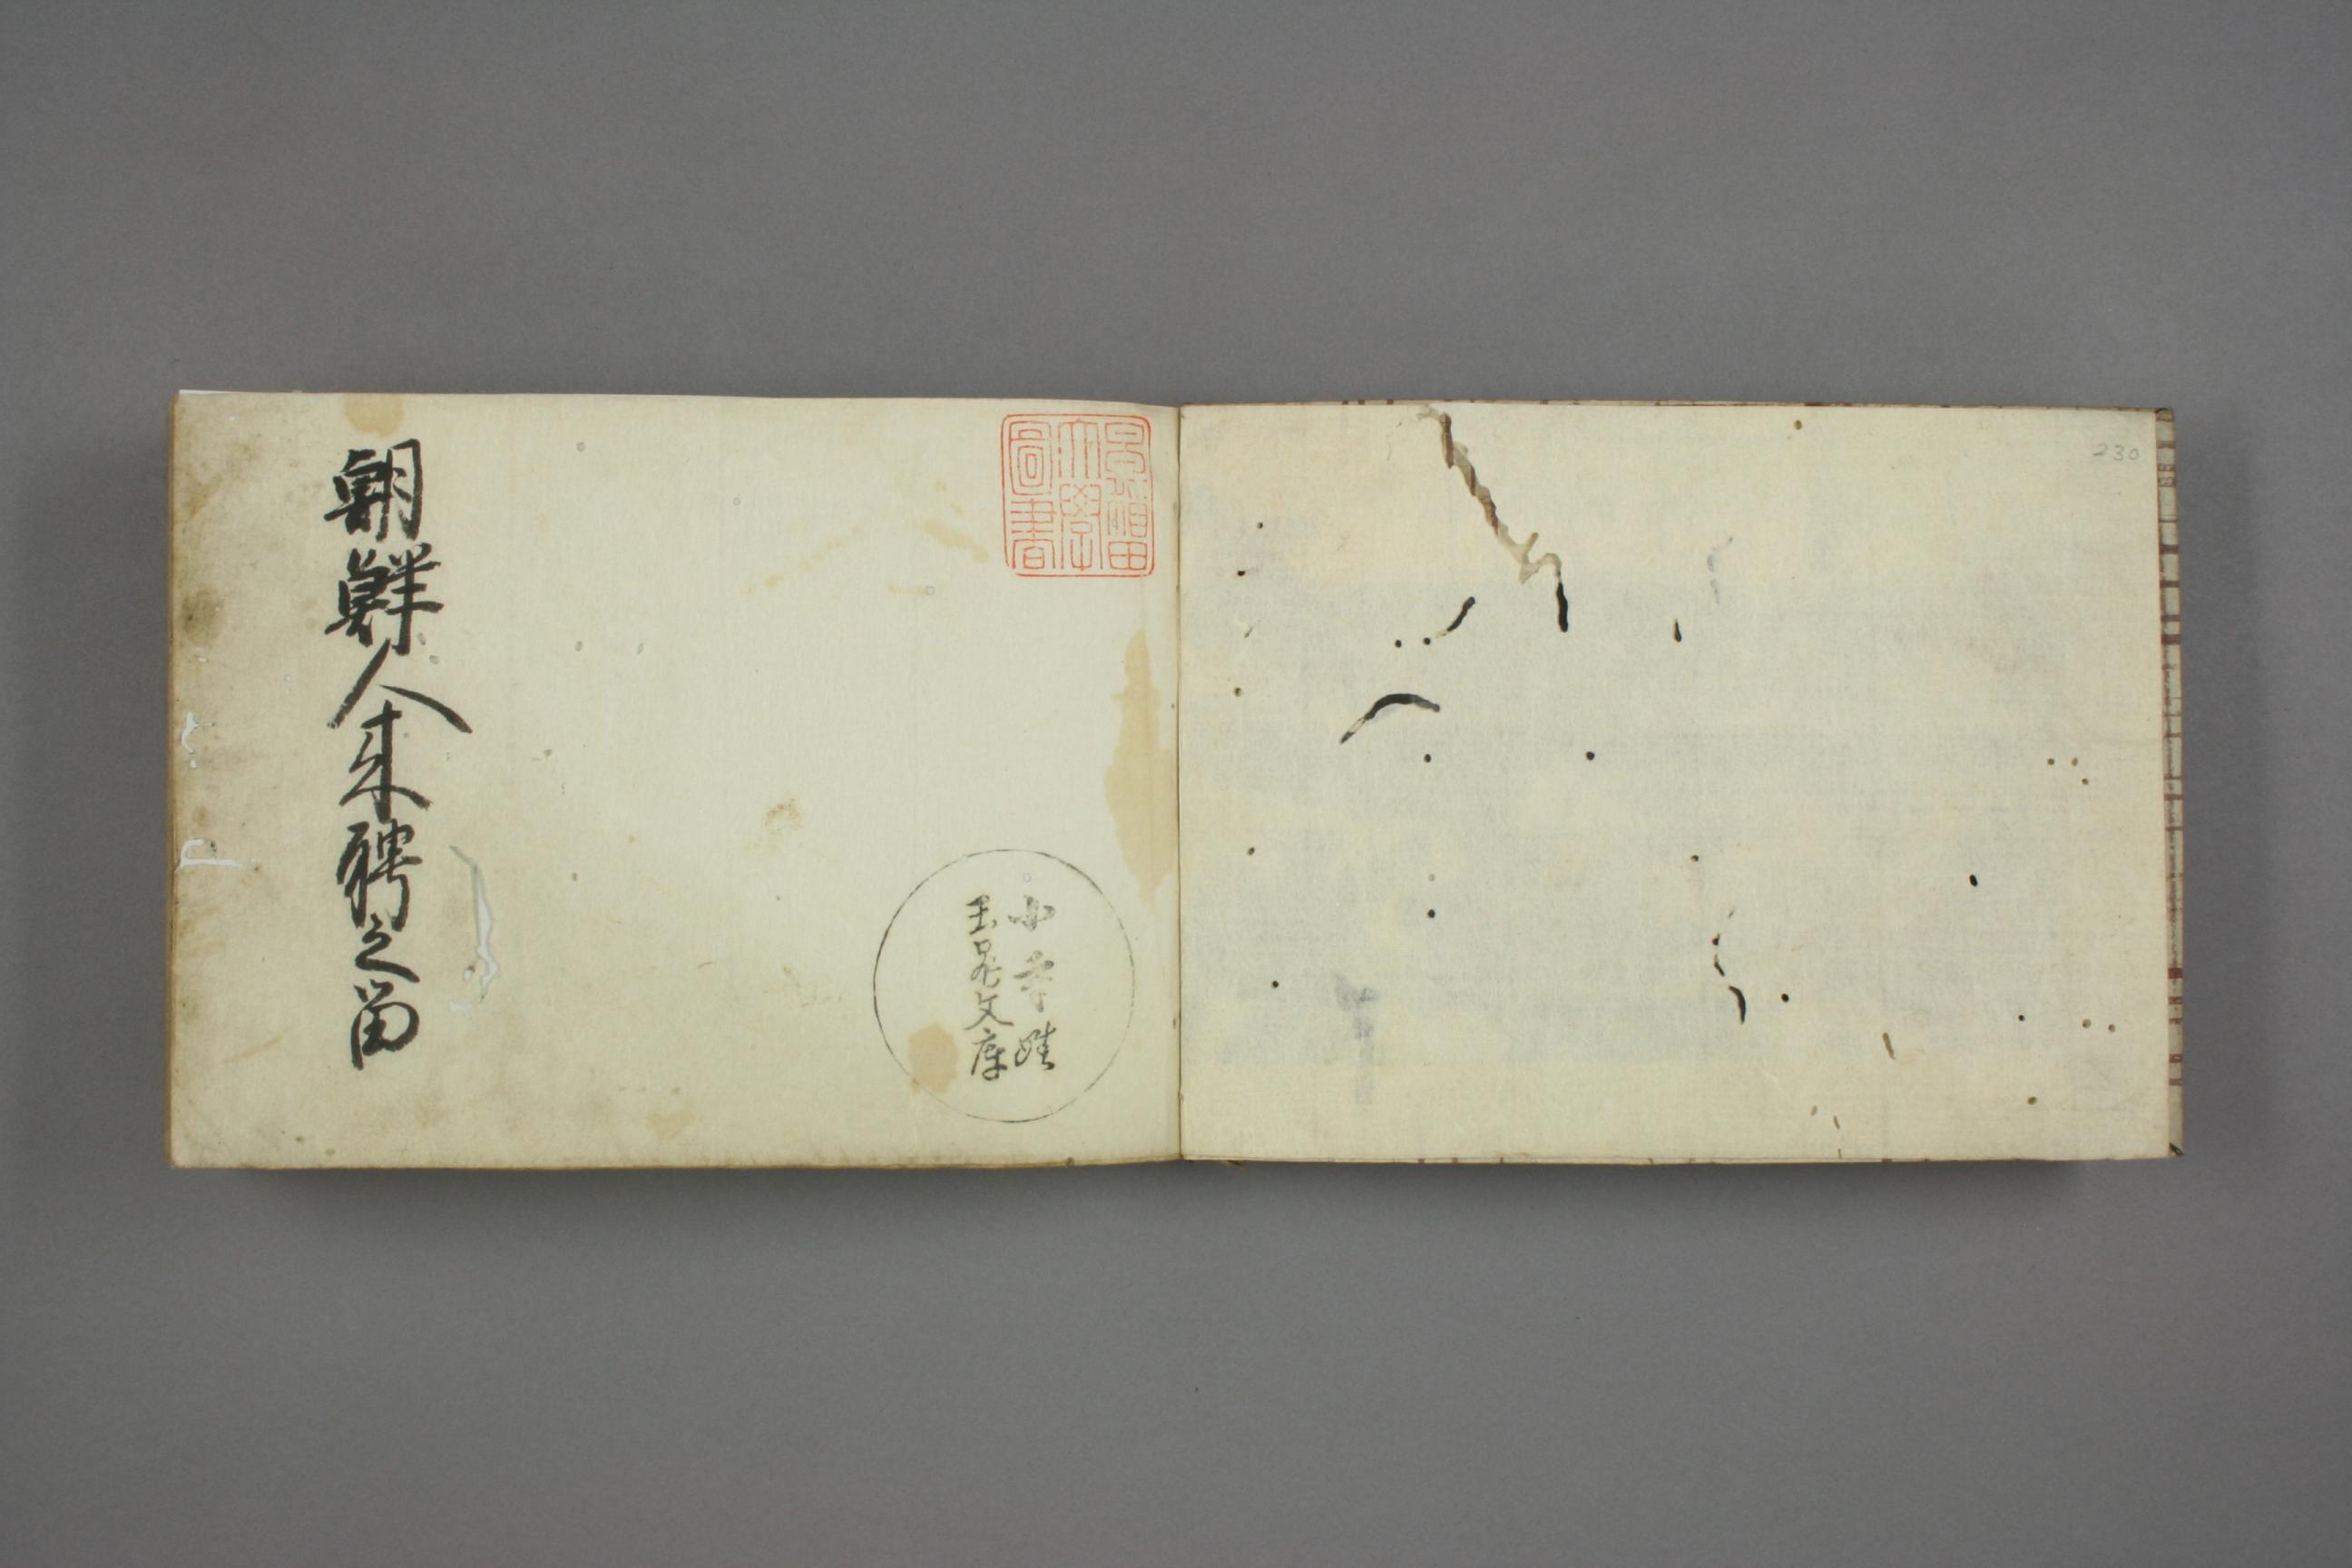 230
早稲田
大學
圖書
小寺姓
玉晁文庫
朝鮮人来聘之留